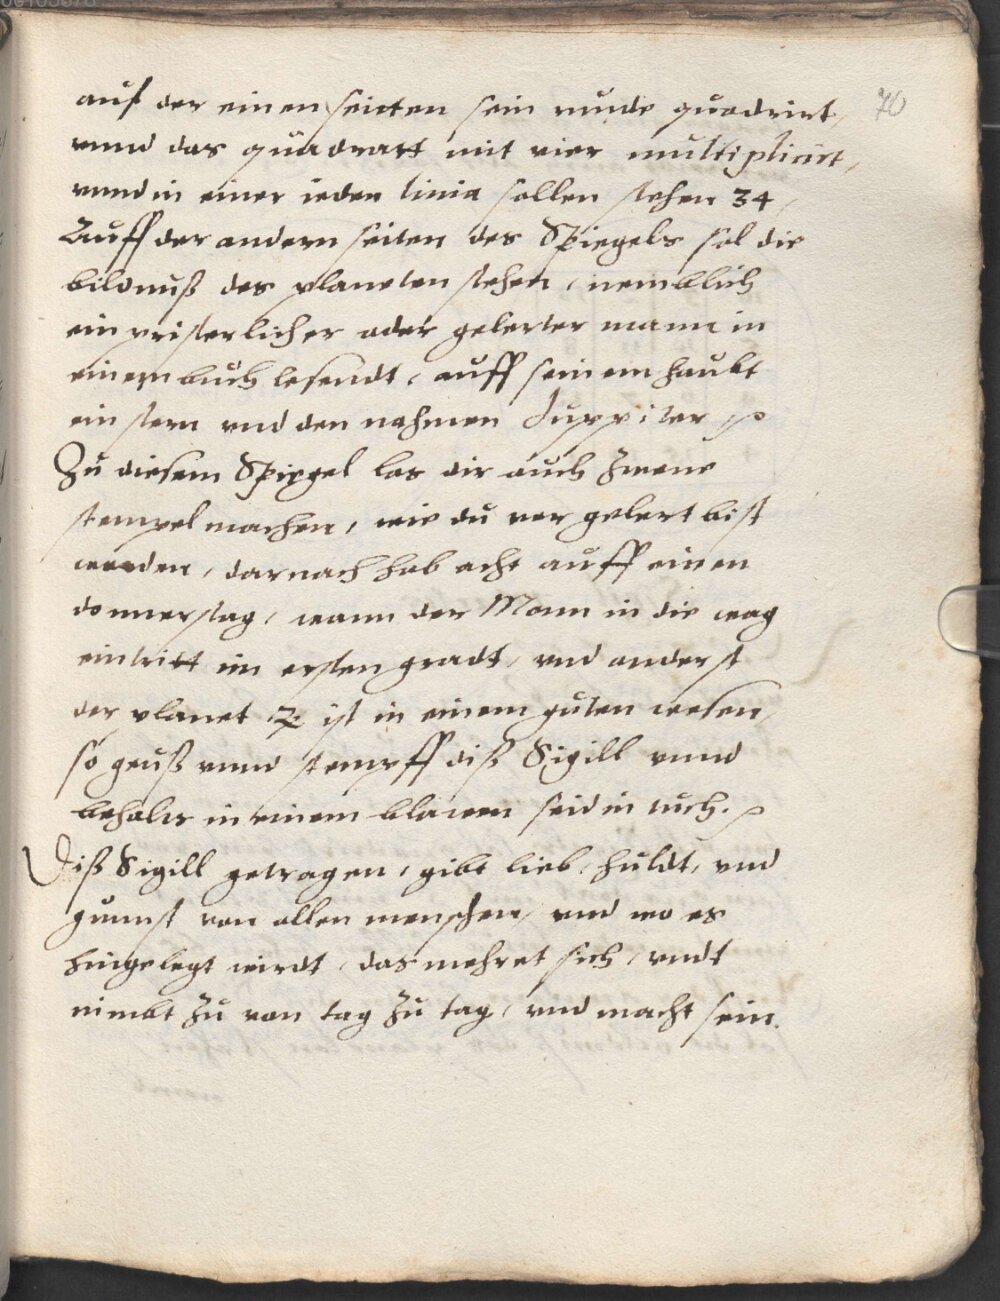 70
auf der einen seitten sein runde quadrirt,
vnnd das quadratt mit vier multiplicirt,
vnnd in einer ieden linia sollen stehen 34,
Auff der andern seiten des Spiegels sol die
bildnuß des planeten stehen, nemblich
ein pristerlicher oder gelerter mann in
einem buch lesendt, auff seinem haubt
ein stern vnd den nahmen Juppiter
Zu diesem Spiegel las dir auch zwene
stempel machen, wie du vor gelert bist
worden, darnach hab acht auff einen
donnerstag, wann der Monn in die wag
eintritt im ersten gradt, vnd anderst
der planet ♃ ist in einem guten wesen,
so geuß vnnd stempff diß Sigill vnnd
behalts in einem blawen seidin tuch.
Diß Sigill getragen, gibt lieb, huldt, vnd
gunnst von allen menschen, vnd wo es
hingelegt wirdt, das mehret sich, vndt
nimbt zu von tag zu tag, vnd macht sein.